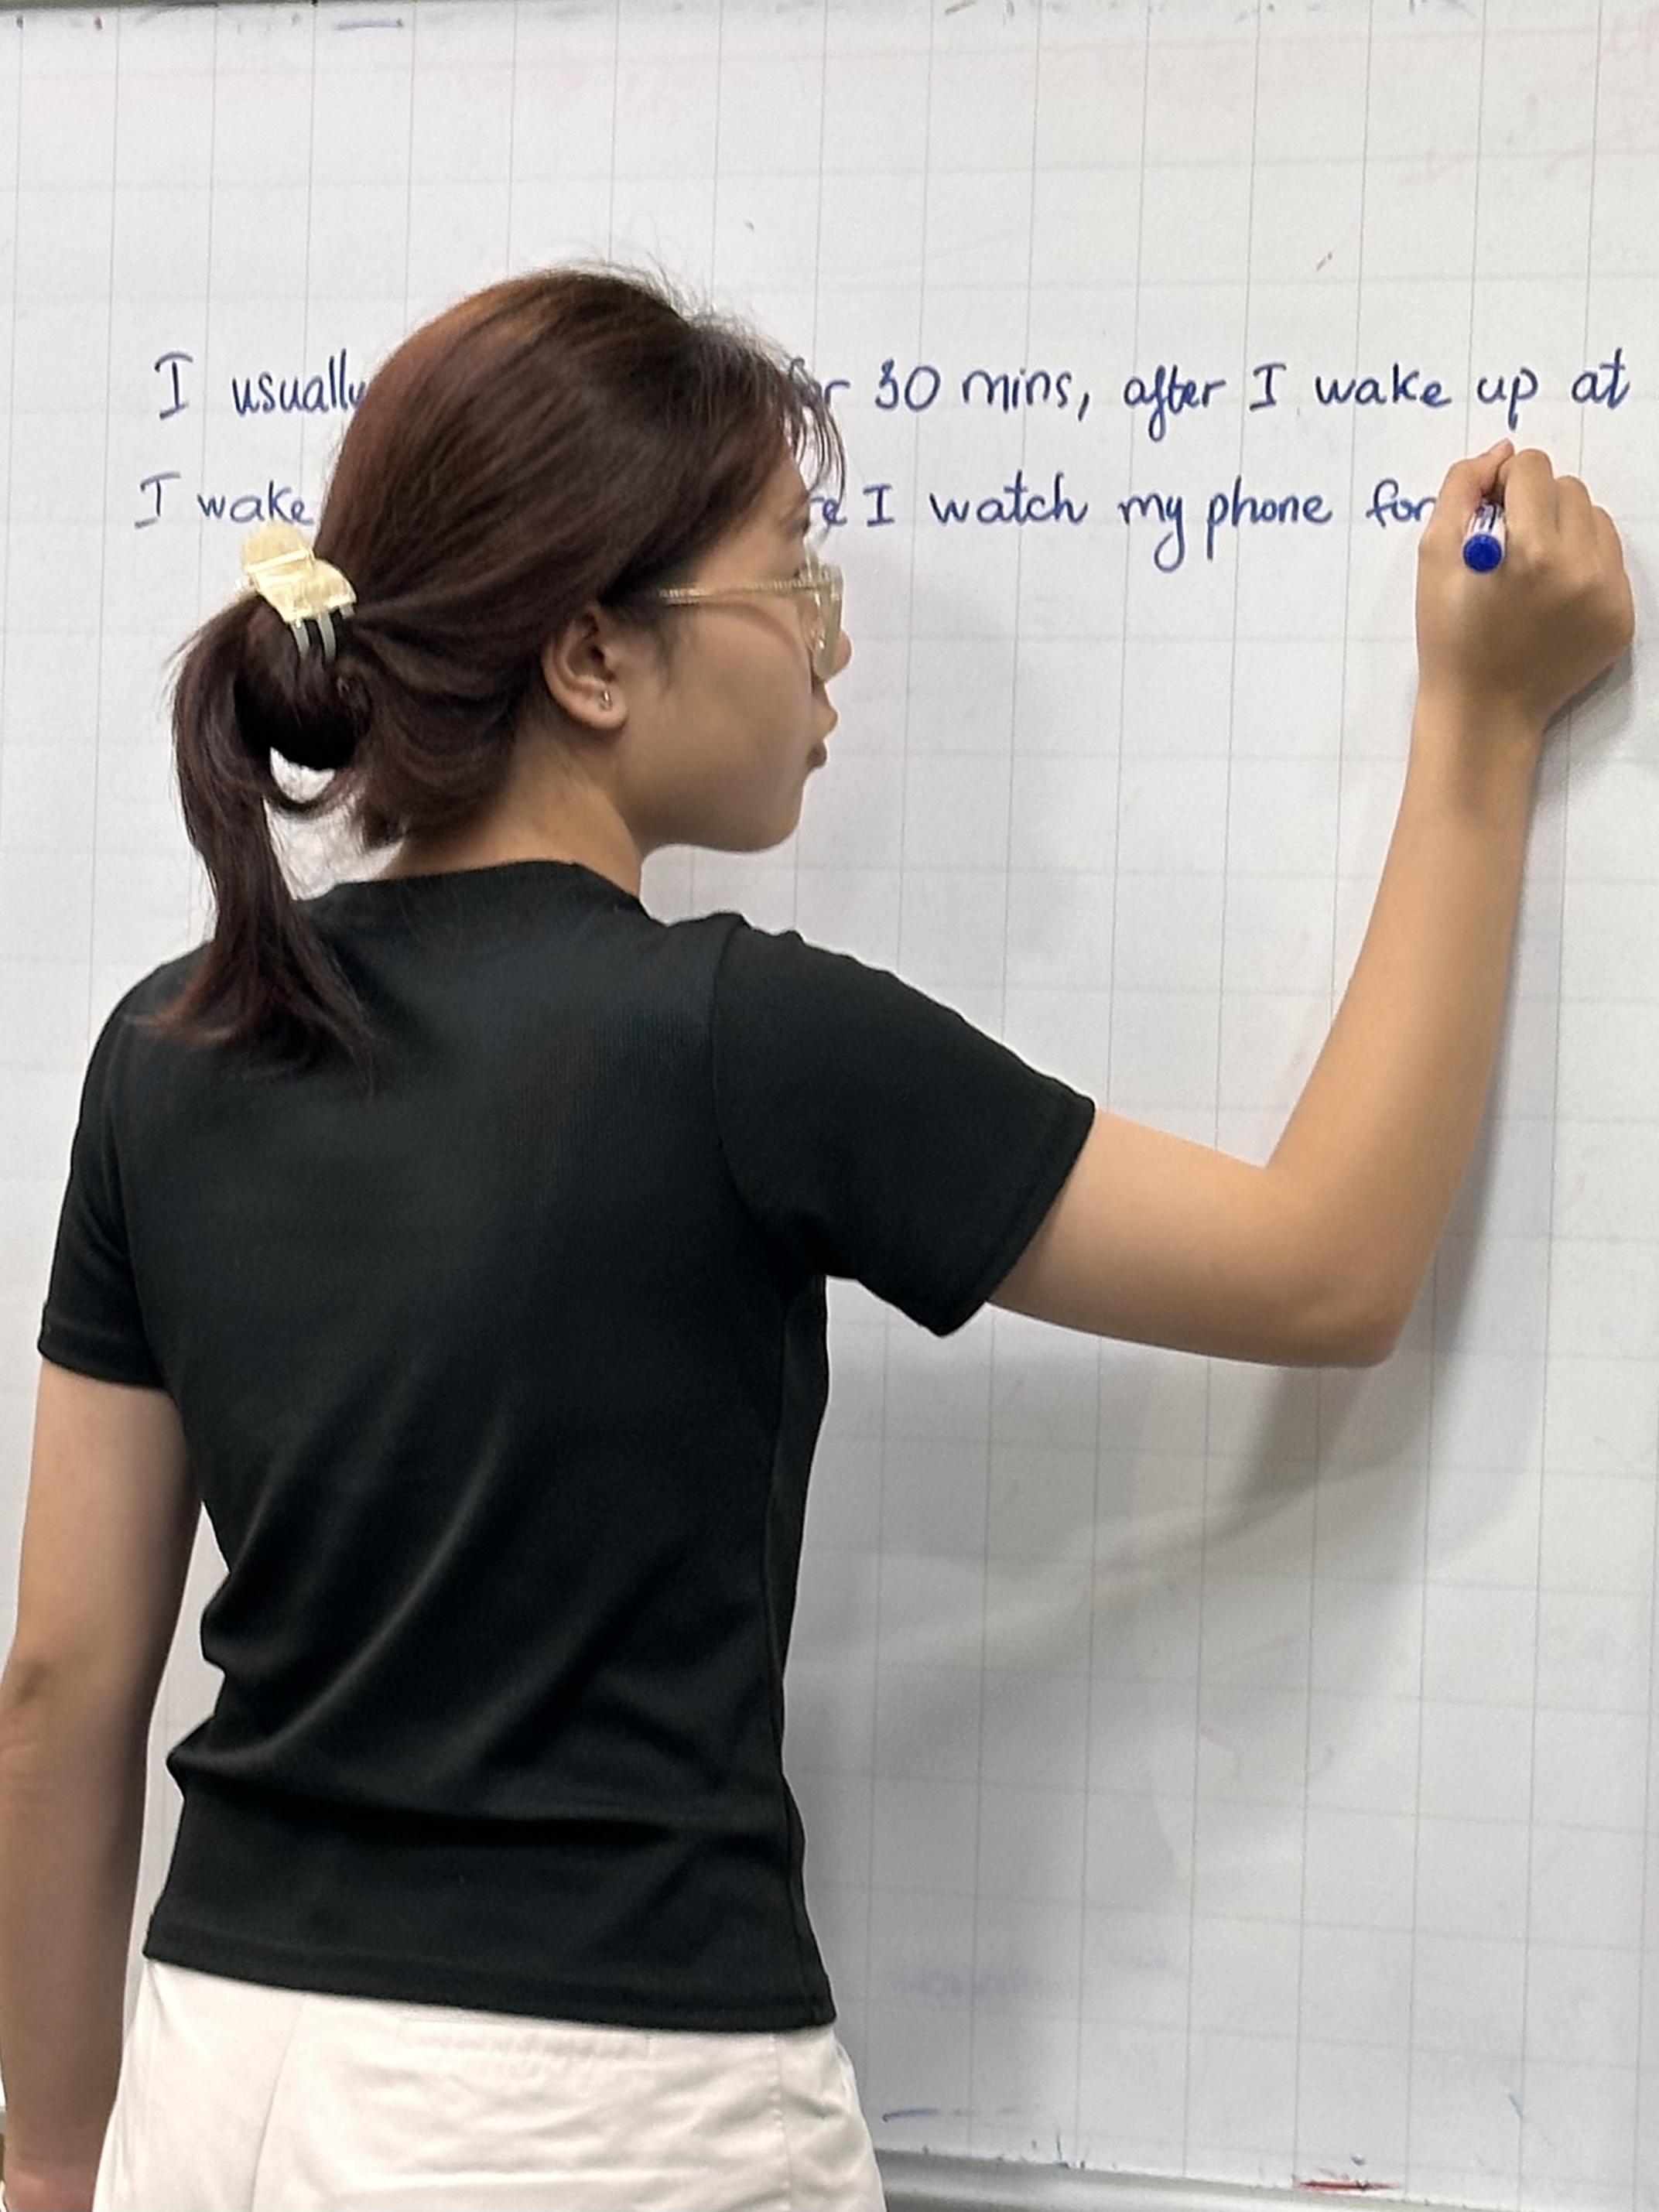 I usually for 30 mins, after I wake up at
I wake I watch my phone for